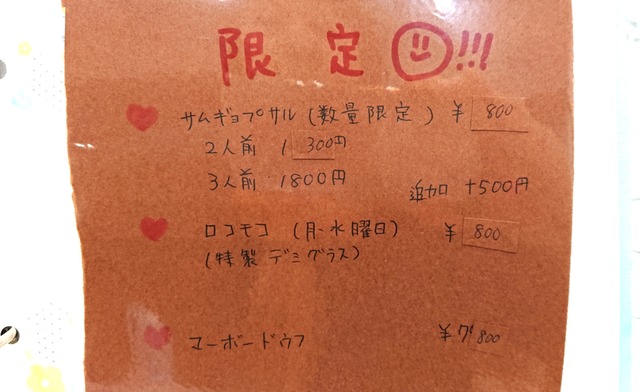 限定!!!
サムギョプサル (数量限定) ¥ 800
2人前 1300円
3人前 1800円
追加 +500円
ロコモコ (月、水曜日) ¥ 800
(特製デミグラス)
マーボードウフ ¥ 800